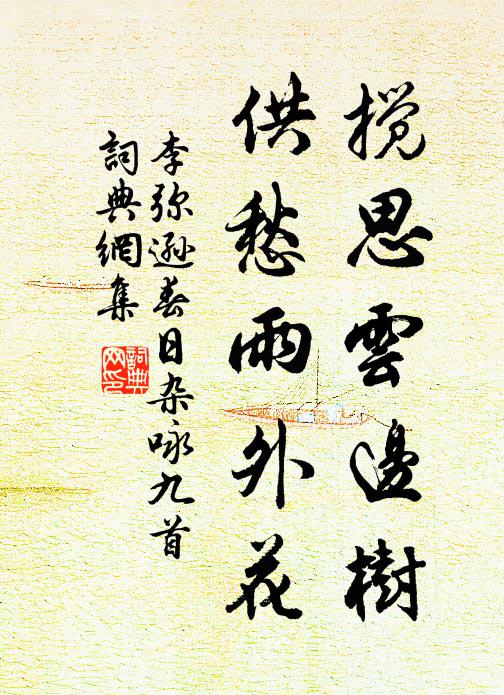 搅思雲邊樹
供愁雨外花
李弥遜春日杂咏九首
詞典網集
詞典网印